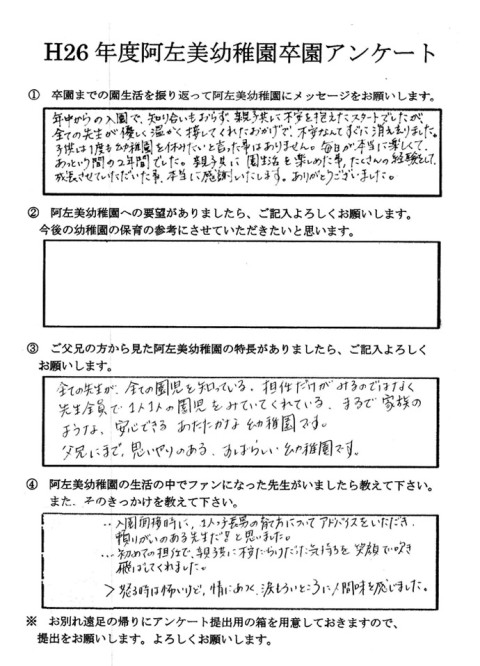 H26 年度阿左美幼稚園卒園アンケート
① 卒園までの園生活を振り返って阿左美幼稚園にメッセージをお願いします。
年中からの入園で、知り合いもおらず、親子共に不安を抱えたスタートでしたが、
全ての先生が優しく温かく接してくれたおかげで、不安なんてすぐに消え去りました。
子供は1度も幼稚園を休みたいと言った事はありません。毎日が本当に楽しくて、
あっという間の2年間でした。親子共に園生活を楽しめた事、たくさんの経験をして、
成長させていただいた事、本当に感謝いたします。ありがとうございました。
② 阿左美幼稚園への要望がありましたら、ご記入よろしくお願いします。
今後の幼稚園の保育の参考にさせていただきたいと思います。
③ ご父兄の方から見た阿左美幼稚園の特長がありましたら、ご記入よろしく
お願いします。
全ての先生が、全ての園児を知っている。担任だけがみるのではなく
先生全員で1人1人の園児をみていてくれている。まるで家族の
ような、安心できるあたたかな幼稚園です。
父兄にまで、思いやりのある、すばらしい幼稚園です。
④ 阿左美幼稚園の生活の中でファンになった先生がいましたら教えて下さい。
また、そのきっかけを教えて下さい。
‥入園面接時に、1人っ子長男の育て方についてアドバイスをいただき、
頼りがいのある先生だ!!と思いました。
‥初めての担任で、親子共に不安だらけだった気持ちを笑顔で吹き
飛ばしてくれました。
＞怒る時は怖いけど、情にあつく、涙もろいところに人間味を感じました。
※ お別れ遠足の帰りにアンケート提出用の箱を用意しておきますので、
提出をお願いします。よろしくお願いします。